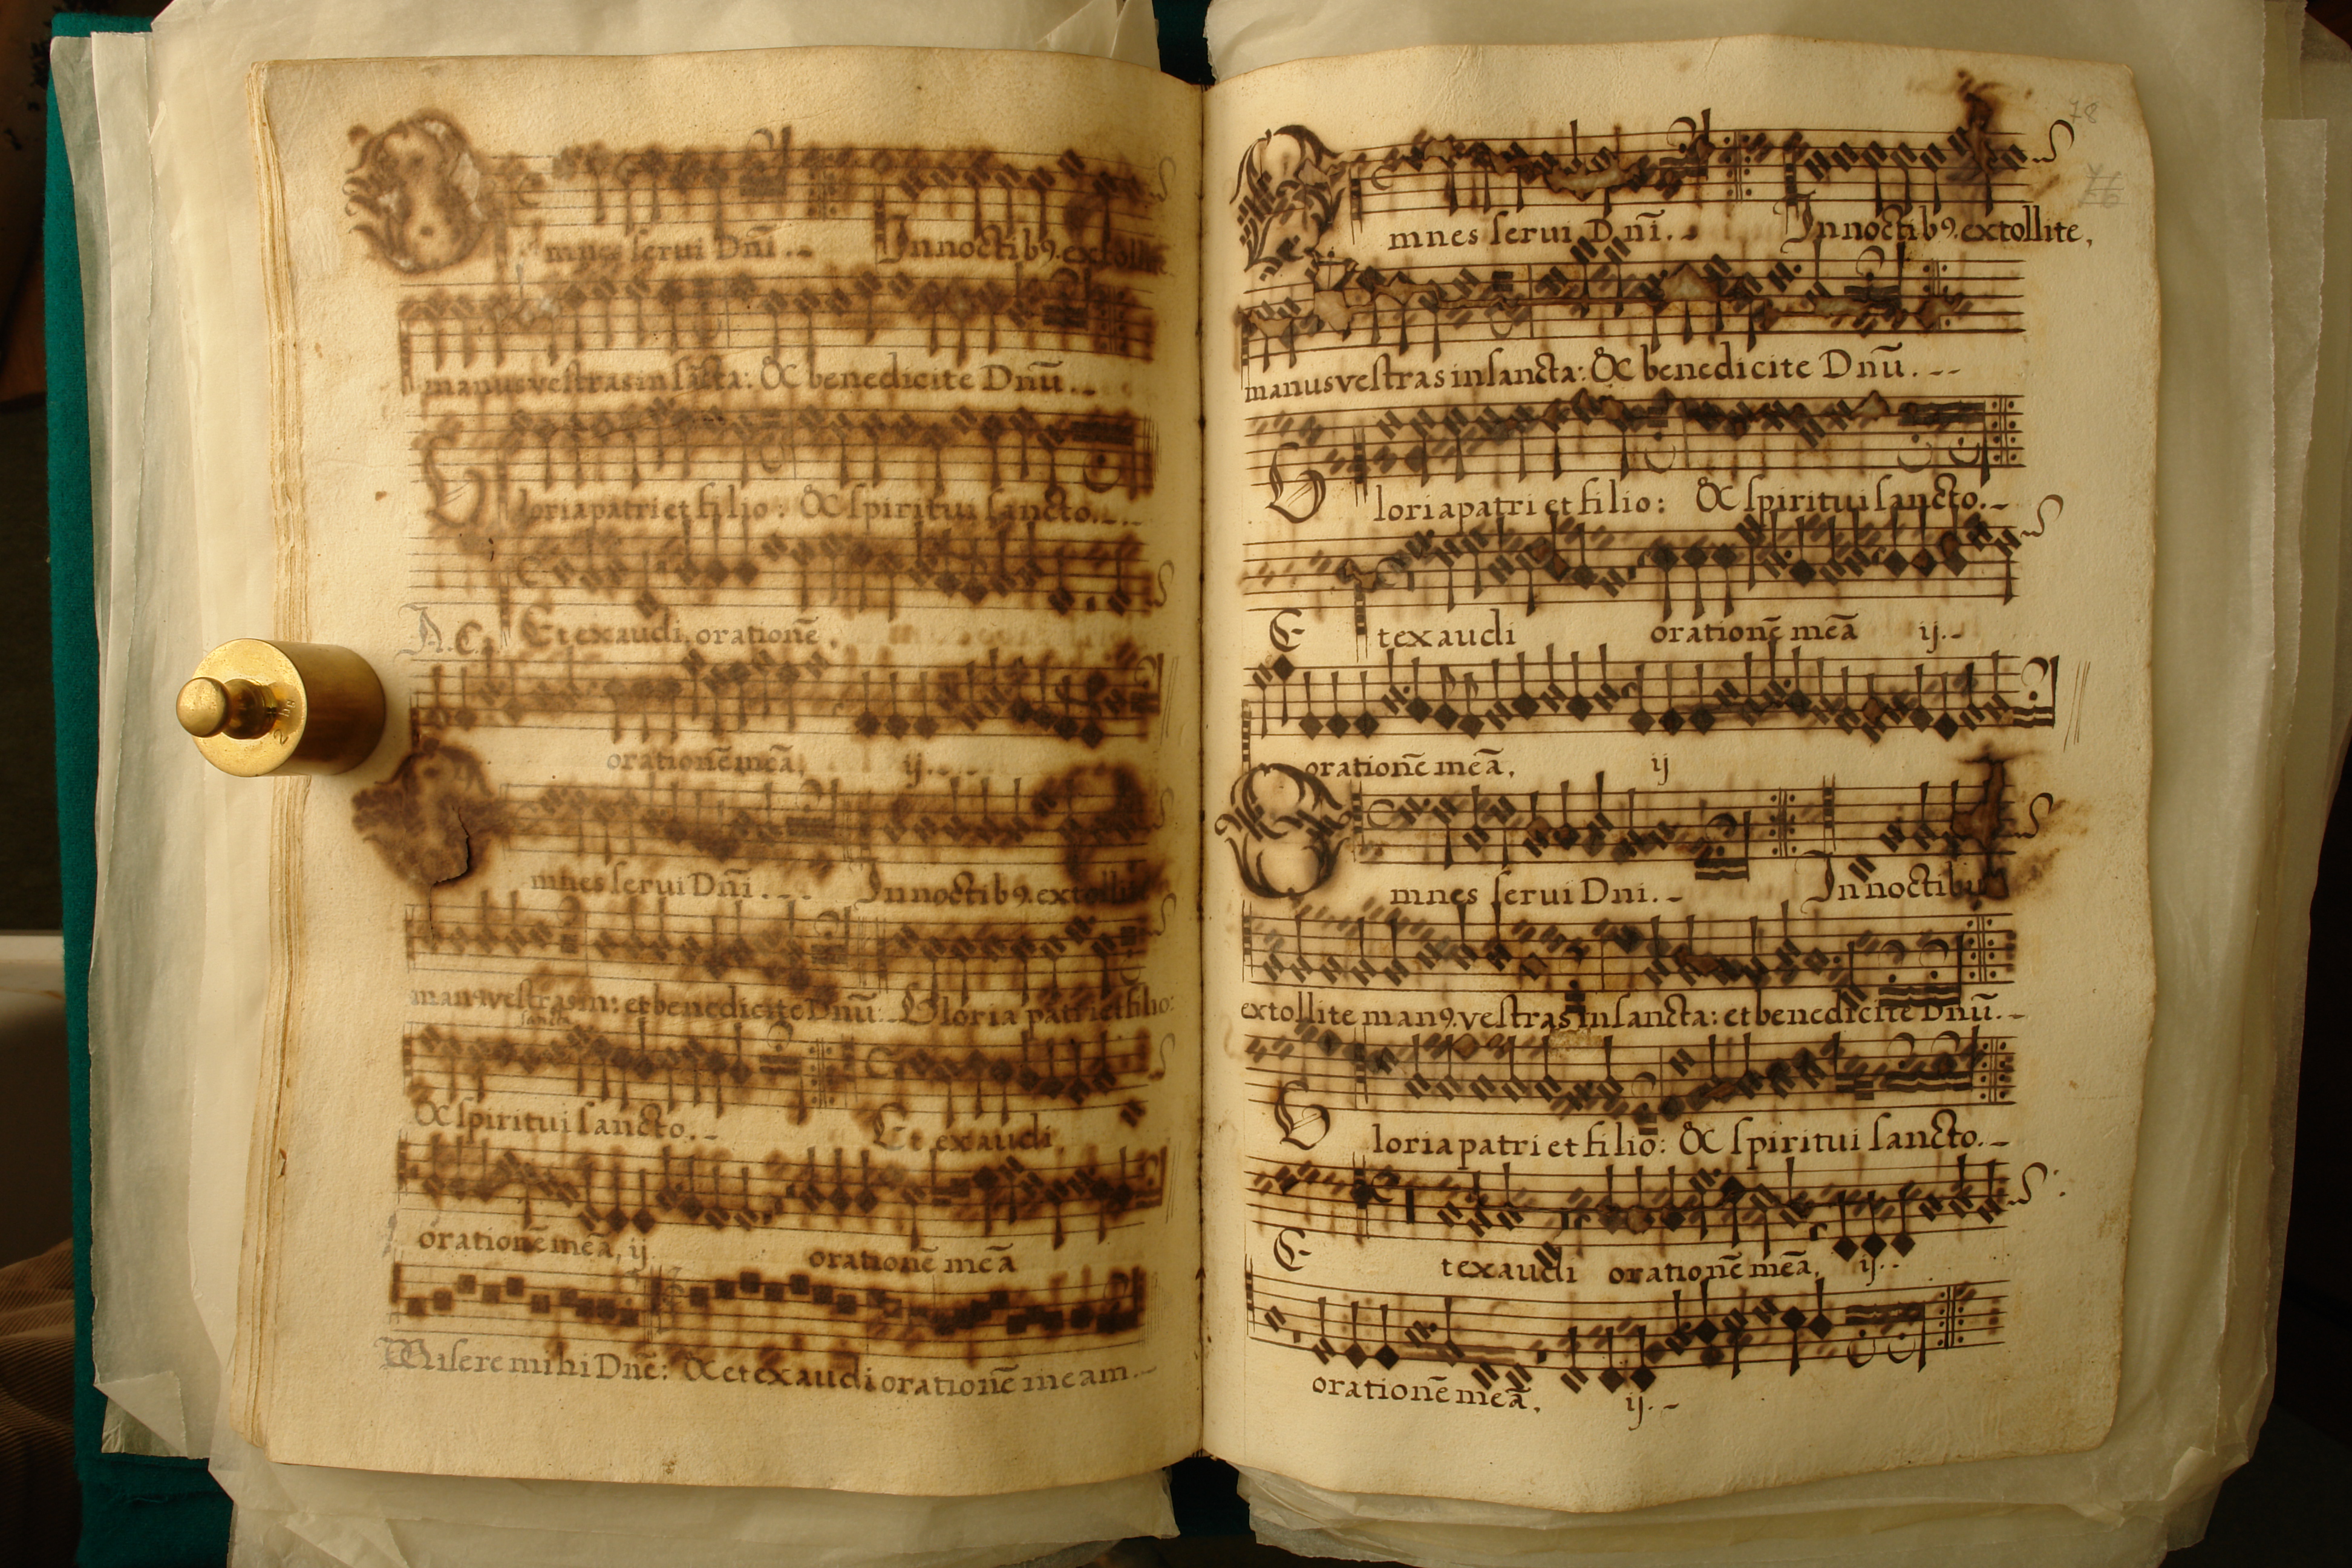 Omnes serui Dnī. In noctibꝰ. extollite
manus vestras in sācta: & benedicite Dnū.
Gloria patri et filio: & spiritui sancto.
A.C. Et exaudi, orationē.
orationē meā, ij.
Omnes serui Dnī. In noctibꝰ. extollite
manꝰ. vestras in: et benedicite Dnū. Gloria patri et filio:
sancta
& spiritui sancto. Et exaudi,
orationē meā, ij orationē meā
Misere mihi Dnē: & et exaudi orationē meam.
78
76
Omnes serui Dnī. In noctibꝰ. extollite,
manus vestras in sancta: & benedicite Dnū.
Gloria patri et filio: & spiritui sancto.
Et exaudi orationē meā ij.
orationē meā, ij
Omnes serui Dni. In noctibus
extollite manꝰ. vestras in sancta: et benedicite Dnū.
Gloria patri et filio: & spiritui sancto.
Et exaudi orationē meā, ij.
orationē meā, ij.